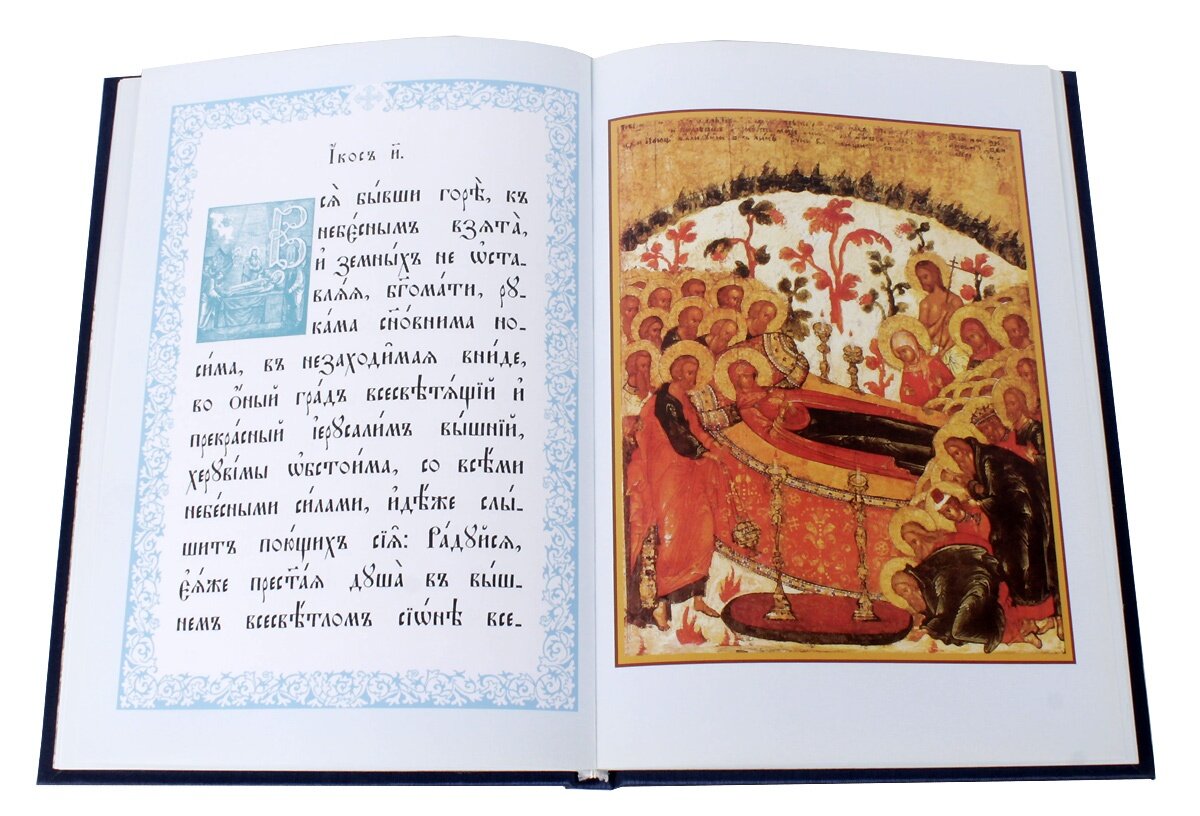 І҆́косъ и҃.
Всѧ̀ бы́вши горѣ̀, къ
небє́снымъ взѧта̀,
и҆ земны́хъ не ѡ҆ста-
влѧ́ѧ, бг҃омати, рꙋ-
ка́ма сн҃о́внима но-
си́ма, въ незаходи̑маѧ вни́де,
во ѻ҆́ный гра́дъ всесвѣтѧ́щїй и҆
прекра́сный і҆ерꙋсали́мъ вы́шнїй,
херꙋві́мы ѡ҆бстои́ма, со всѣ́ми
небе́сными си́лами, и҆дѣ́же слы́-
шитъ пою́щихъ сїѧ̑: Ра́дꙋйсѧ,
є҆ѧ́же прест҃а́ѧ дꙋша̀ въ вы́ш-
немъ всесвѣ́тломъ сїѡ́нѣ все-